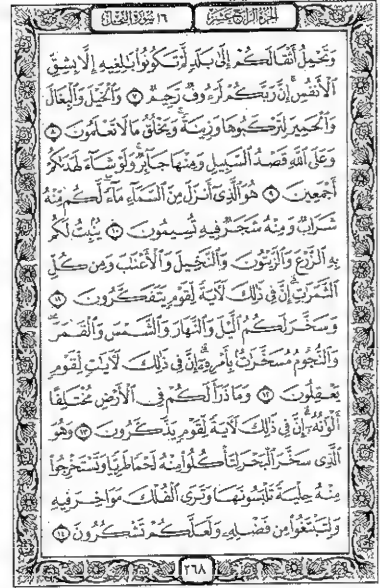 الجزء الرابع عشر ١٦ سورة النحل
وَتَحْمِلُ أَثْقَالَكُمْ إِلَىٰ بَلَدٍ لَّمْ تَكُونُوا۟ بَـٰلِغِيهِ إِلَّا بِشِقِّ
ٱلْأَنفُسِ إِنَّ رَبَّكُمْ لَرَءُوفٌ رَّحِيمٌ ٧ وَٱلْخَيْلَ وَٱلْبِغَالَ
وَٱلْحَمِيرَ لِتَرْكَبُوهَا وَزِينَةً وَيَخْلُقُ مَا لَا تَعْلَمُونَ ٨
وَعَلَى ٱللَّهِ قَصْدُ ٱلسَّبِيلِ وَمِنْهَا جَآئِرٌ وَلَوْ شَآءَ لَهَدَىٰكُمْ
أَجْمَعِينَ ٩ هُوَ ٱلَّذِىٓ أَنزَلَ مِنَ ٱلسَّمَآءِ مَآءً لَّكُم مِّنْهُ
شَرَابٌ وَمِنْهُ شَجَرٌ فِيهِ تُسِيمُونَ ١٠ يُنۢبِتُ لَكُم
بِهِ ٱلزَّرْعَ وَٱلزَّيْتُونَ وَٱلنَّخِيلَ وَٱلْأَعْنَـٰبَ وَمِن كُلِّ
ٱلثَّمَرَٰتِ إِنَّ فِى ذَٰلِكَ لَـَٔايَةً لِّقَوْمٍ يَتَفَكَّرُونَ ١١
وَسَخَّرَ لَكُمُ ٱلَّيْلَ وَٱلنَّهَارَ وَٱلشَّمْسَ وَٱلْقَمَرَ
وَٱلنُّجُومُ مُسَخَّرَٰتٌۢ بِأَمْرِهِۦٓ إِنَّ فِى ذَٰلِكَ لَـَٔايَـٰتٍ لِّقَوْمٍ
يَعْقِلُونَ ١٢ وَمَا ذَرَأَ لَكُمْ فِى ٱلْأَرْضِ مُخْتَلِفًا
أَلْوَٰنُهُۥٓ إِنَّ فِى ذَٰلِكَ لَـَٔايَةً لِّقَوْمٍ يَذَّكَّرُونَ ١٣ وَهُوَ
ٱلَّذِى سَخَّرَ ٱلْبَحْرَ لِتَأْكُلُوا۟ مِنْهُ لَحْمًا طَرِيًّا وَتَسْتَخْرِجُوا۟
مِنْهُ حِلْيَةً تَلْبَسُونَهَا وَتَرَى ٱلْفُلْكَ مَوَاخِرَ فِيهِ
وَلِتَبْتَغُوا۟ مِن فَضْلِهِۦ وَلَعَلَّكُمْ تَشْكُرُونَ ١٤
٢٦٨